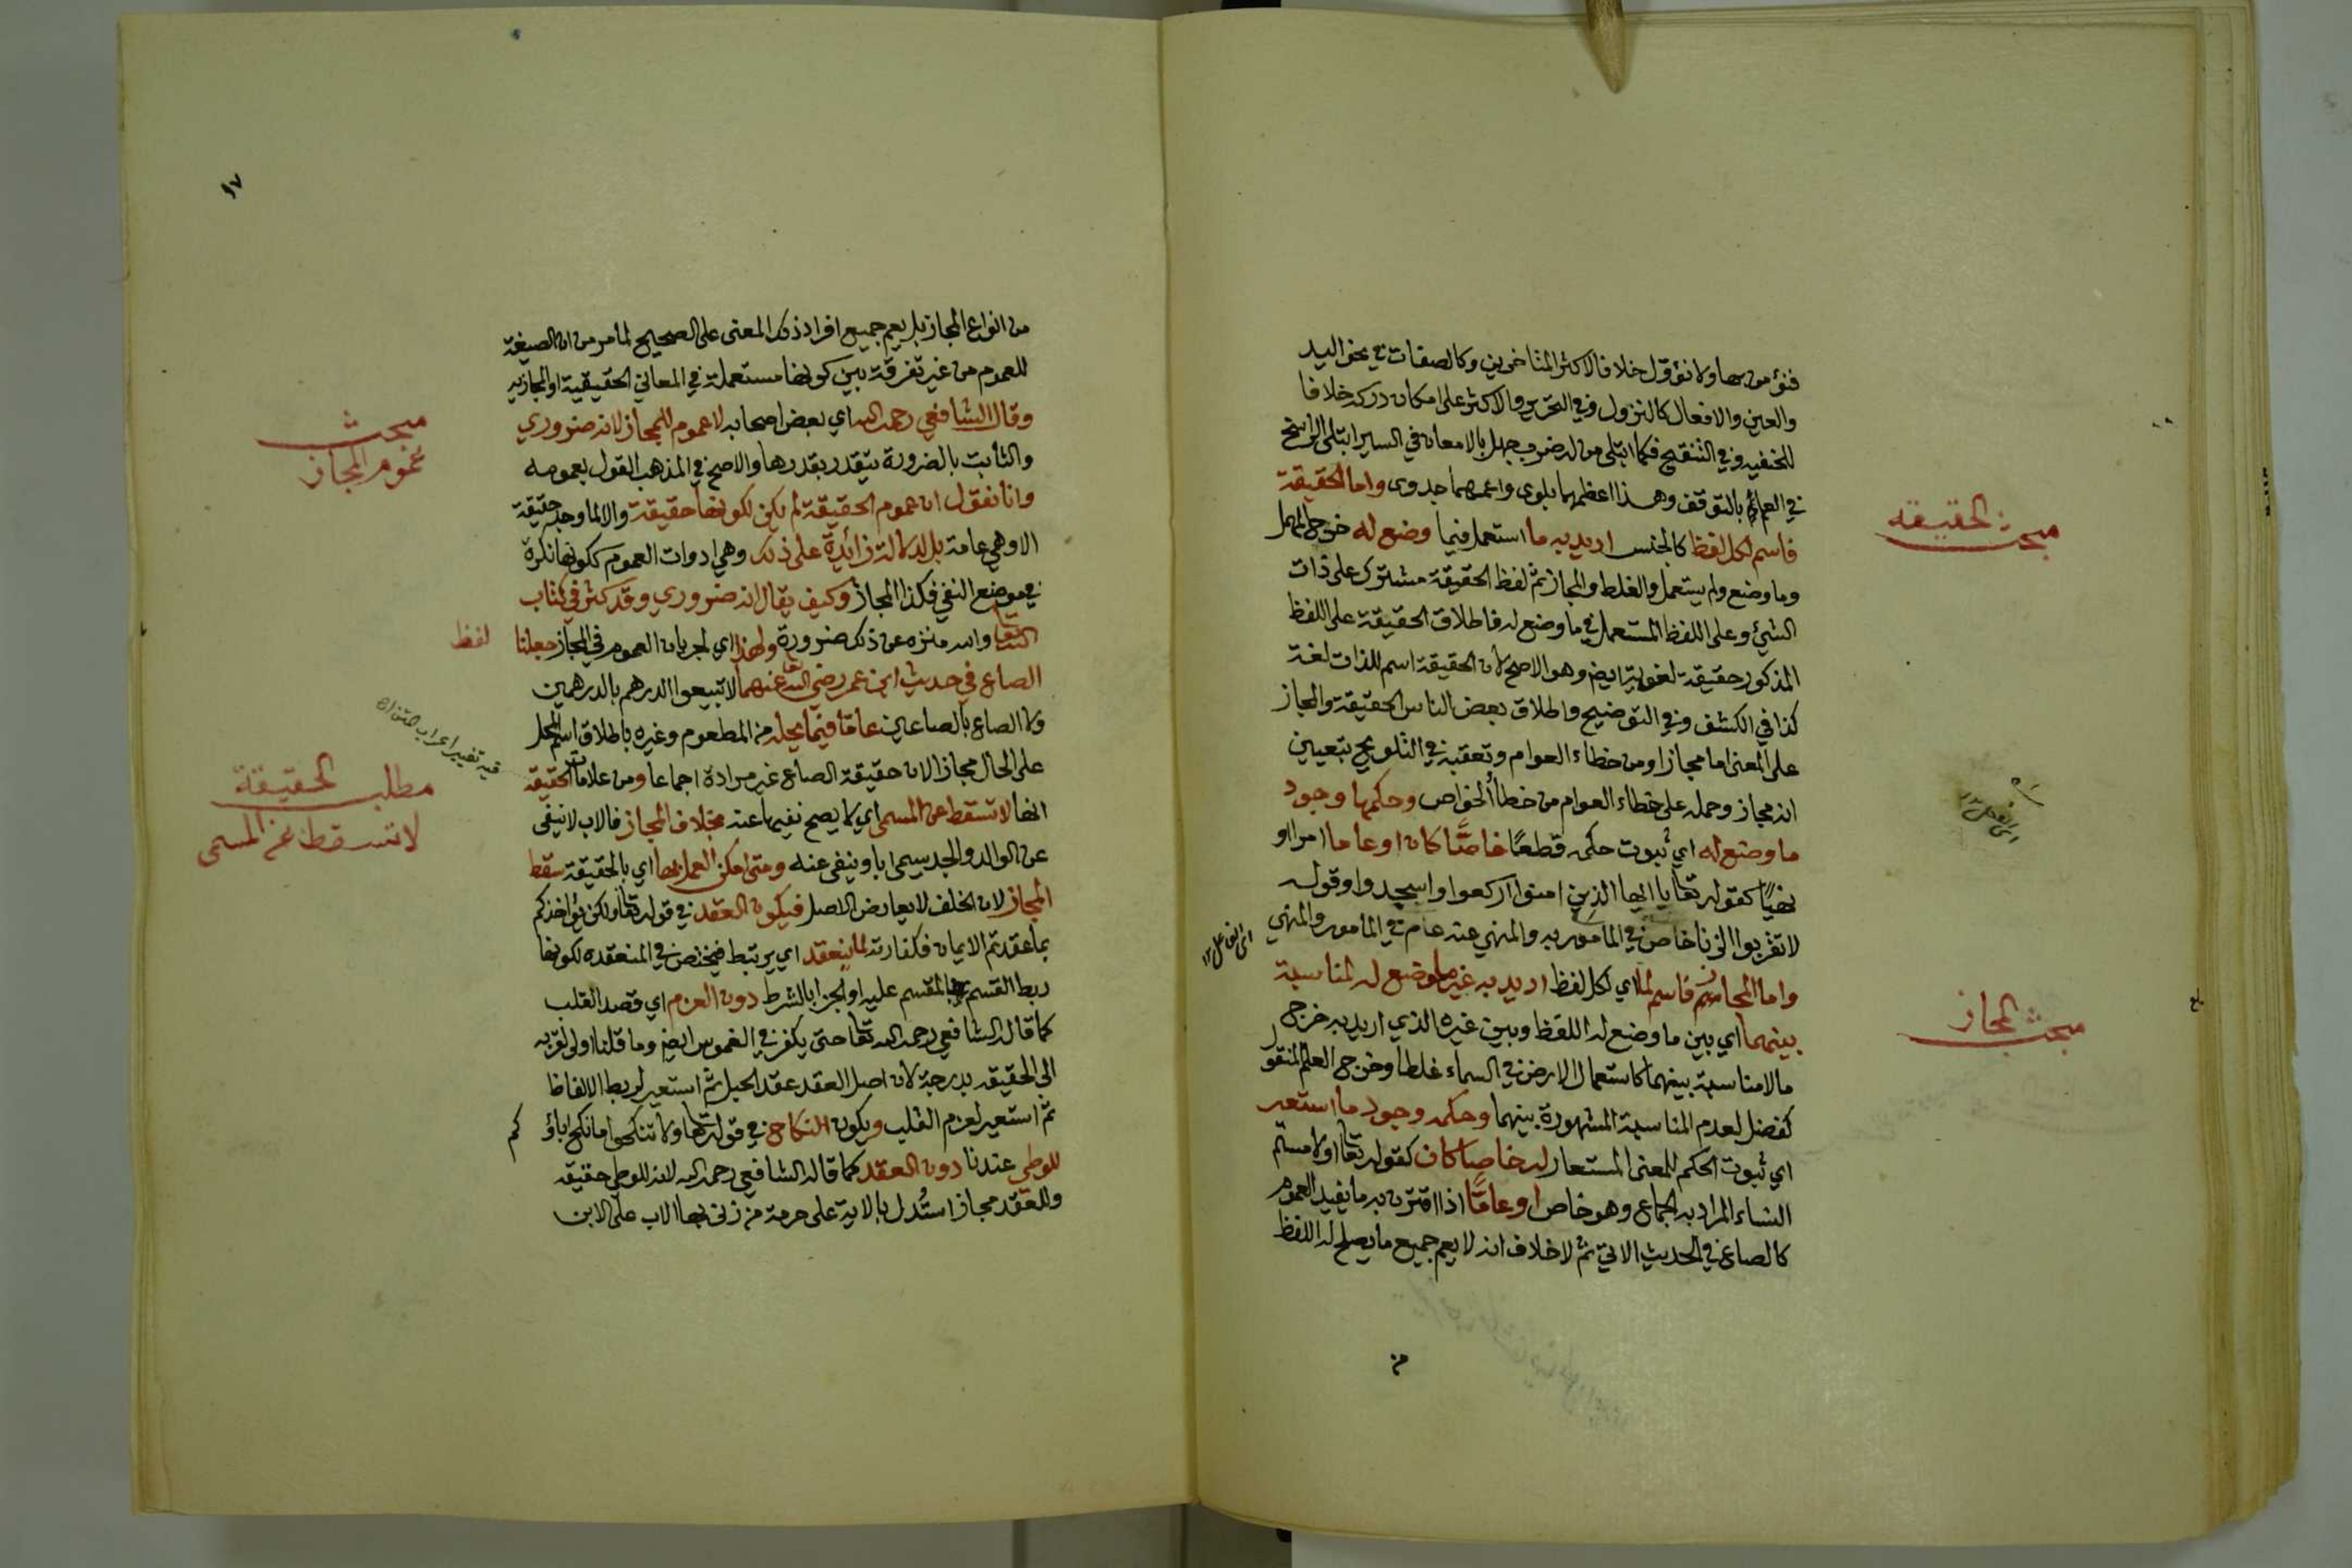 فنؤمن بها ولا نؤول خلافا لاكثر المتاخرين وكالصفات في نحو اليد
والعين والافعال كالنزول وفي التحرير والاكثر على امكان دركه خلافا
للحنفيه وفي التنقيح فكما ابتلى من له ضرب جهل بالامعان في السير ابتلى الراسخ
في العلم بالتوقف وهذا اعظمهما بلوى واعمهما جدوى واما الحقيقة
فاسم لكل لفظ كالجنس اريد به ما استعمل فيما وضع له خرج المهمل
وما وضع ولم يستعمل والغلط والمجاز ثم لفظ الحقيقة مشترك على ذات
الشئ وعلى اللفظ المستعمل في ما وضع له فاطلاق الحقيقة على اللفظ
المذكور حقيقة لغوية ايضا وهو الاصح لان الحقيقة اسم للذات لغة
كذا في الكشف وفي التوضيح واطلاق بعض الناس الحقيقة والمجاز
على المعنى اما مجاز او من خطاء العوام وتعقبه في التلويح بتعيين
انه مجاز وحمله على خطاء العوام من خطأ الخواص وحكمها وجود
ما وضع له اي ثبوت حكمه قطعًا خاصًّا كان او عاما امرا او
نهيًا كقوله تعا يا ايها الذين امنوا اركعوا واسجدوا وقوله
لا تقربوا الزنا خاص في المأمور به والمنهي عنه عام في المأمور والمنهي
واما المجاز فاسم لما اي لكل لفظ اريد به غير ما وضع له لمناسبة
بينهما اي بين ما وضع له اللفظ وبين غيره الذي اريد به خرج
ما لا مناسبة بينهما كاستعمال الارض في السماء غلطا وخرج العلم المنقول
كفضل لعدم المناسبة المشهورة بينهما وحكمه وجود ما استعير
اي ثبوت الحكم للمعنى المستعار له خاصا كان كقوله تعا او لامستم
النساء المراد به الجماع وهو خاص او عامًّا اذا اقترن به ما يفيد العموم
كالصاع في الحديث الاتي ثم لا خلاف انه لا يعم جميع ما يصلح له اللفظ
مبحث الحقيقه
مبحث المجاز
من
٦٧
من انواع المجاز بل يعم جميع افراد ذلك المعنى على الصحيح لما مر من ان الصيغة
للعموم من غير تفرقة بين كونها مستعملة في المعاني الحقيقية او المجازيه
وقال الشافعي رحمه الله اي بعض اصحابه لا عموم للمجاز لانه ضروري
والثابت بالضرورة يتقدر بقدرها والاصح في المذهب القول بعمومه
وانا نقول ان عموم الحقيقة لم يكن لكونها حقيقة والا لما وجد حقيقة
الا وهي عامة بل لدلالة زائدة على ذلك وهي ادوات العموم ككونها نكرة
في موضع النفي فكذا المجاز وكيف يقال انه ضروري وقد كثر في كتاب
الله تعا والله منزه عن ذلك ضرورة ولهذا اي لجريان العموم في المجاز جعلنا لفظ
الصاع في حديث ابن عمر رضي الله عنهما لا تبيعوا الدرهم بالدرهمين
ولا الصاع بالصاعين عاما فيما يحله من المطعوم وغيره باطلاق اسم المحل
على الحال مجازا لان حقيقة الصاع غير مرادة اجماعا ومن علامات الحقيقه
انها لا تسقط عن المسمى اي لا يصح نفيها عنه بخلاف المجاز فالاب لا ينفى
عن الوالد والجد يسمى ابا وينفى عنه ومتى امكن العمل بها اي بالحقيقة سقط
المجاز لان الخلف لا يعارض الاصل فيكون العقد في قوله تعا ولكن يؤاخذكم
بما عقدتم الايمان فكفارته لما ينعقد اي يرتبط فيختص في المنعقده لكونها
ربط القسم بالمقسم عليه او الجزا بالشرط دون العزم اي قصد القلب
كما قاله الشافعي رحمه الله تعا حتى يكفر في الغموس ايضا وما قلنا اولى لقربه
الى الحقيقه بدرجة لان اصل العقد عقد الحبل ثم استعير لربط الالفاظ
ثم استعير لعزم القلب ويكون النكاح في قوله تعا ولا تنكحوا ما نكح اباؤكم
للوطى عندنا دون العقد كما قاله الشافعي رحمه الله لانه للوطى حقيقه
وللعقد مجاز استُدل بالاية على حرمة من زنى بها الاب على الابن
مبحث
عموم المجاز
فيه تغيير اعراب المتن اه
مطلب الحقيقة
لا تسقط عن المسمى